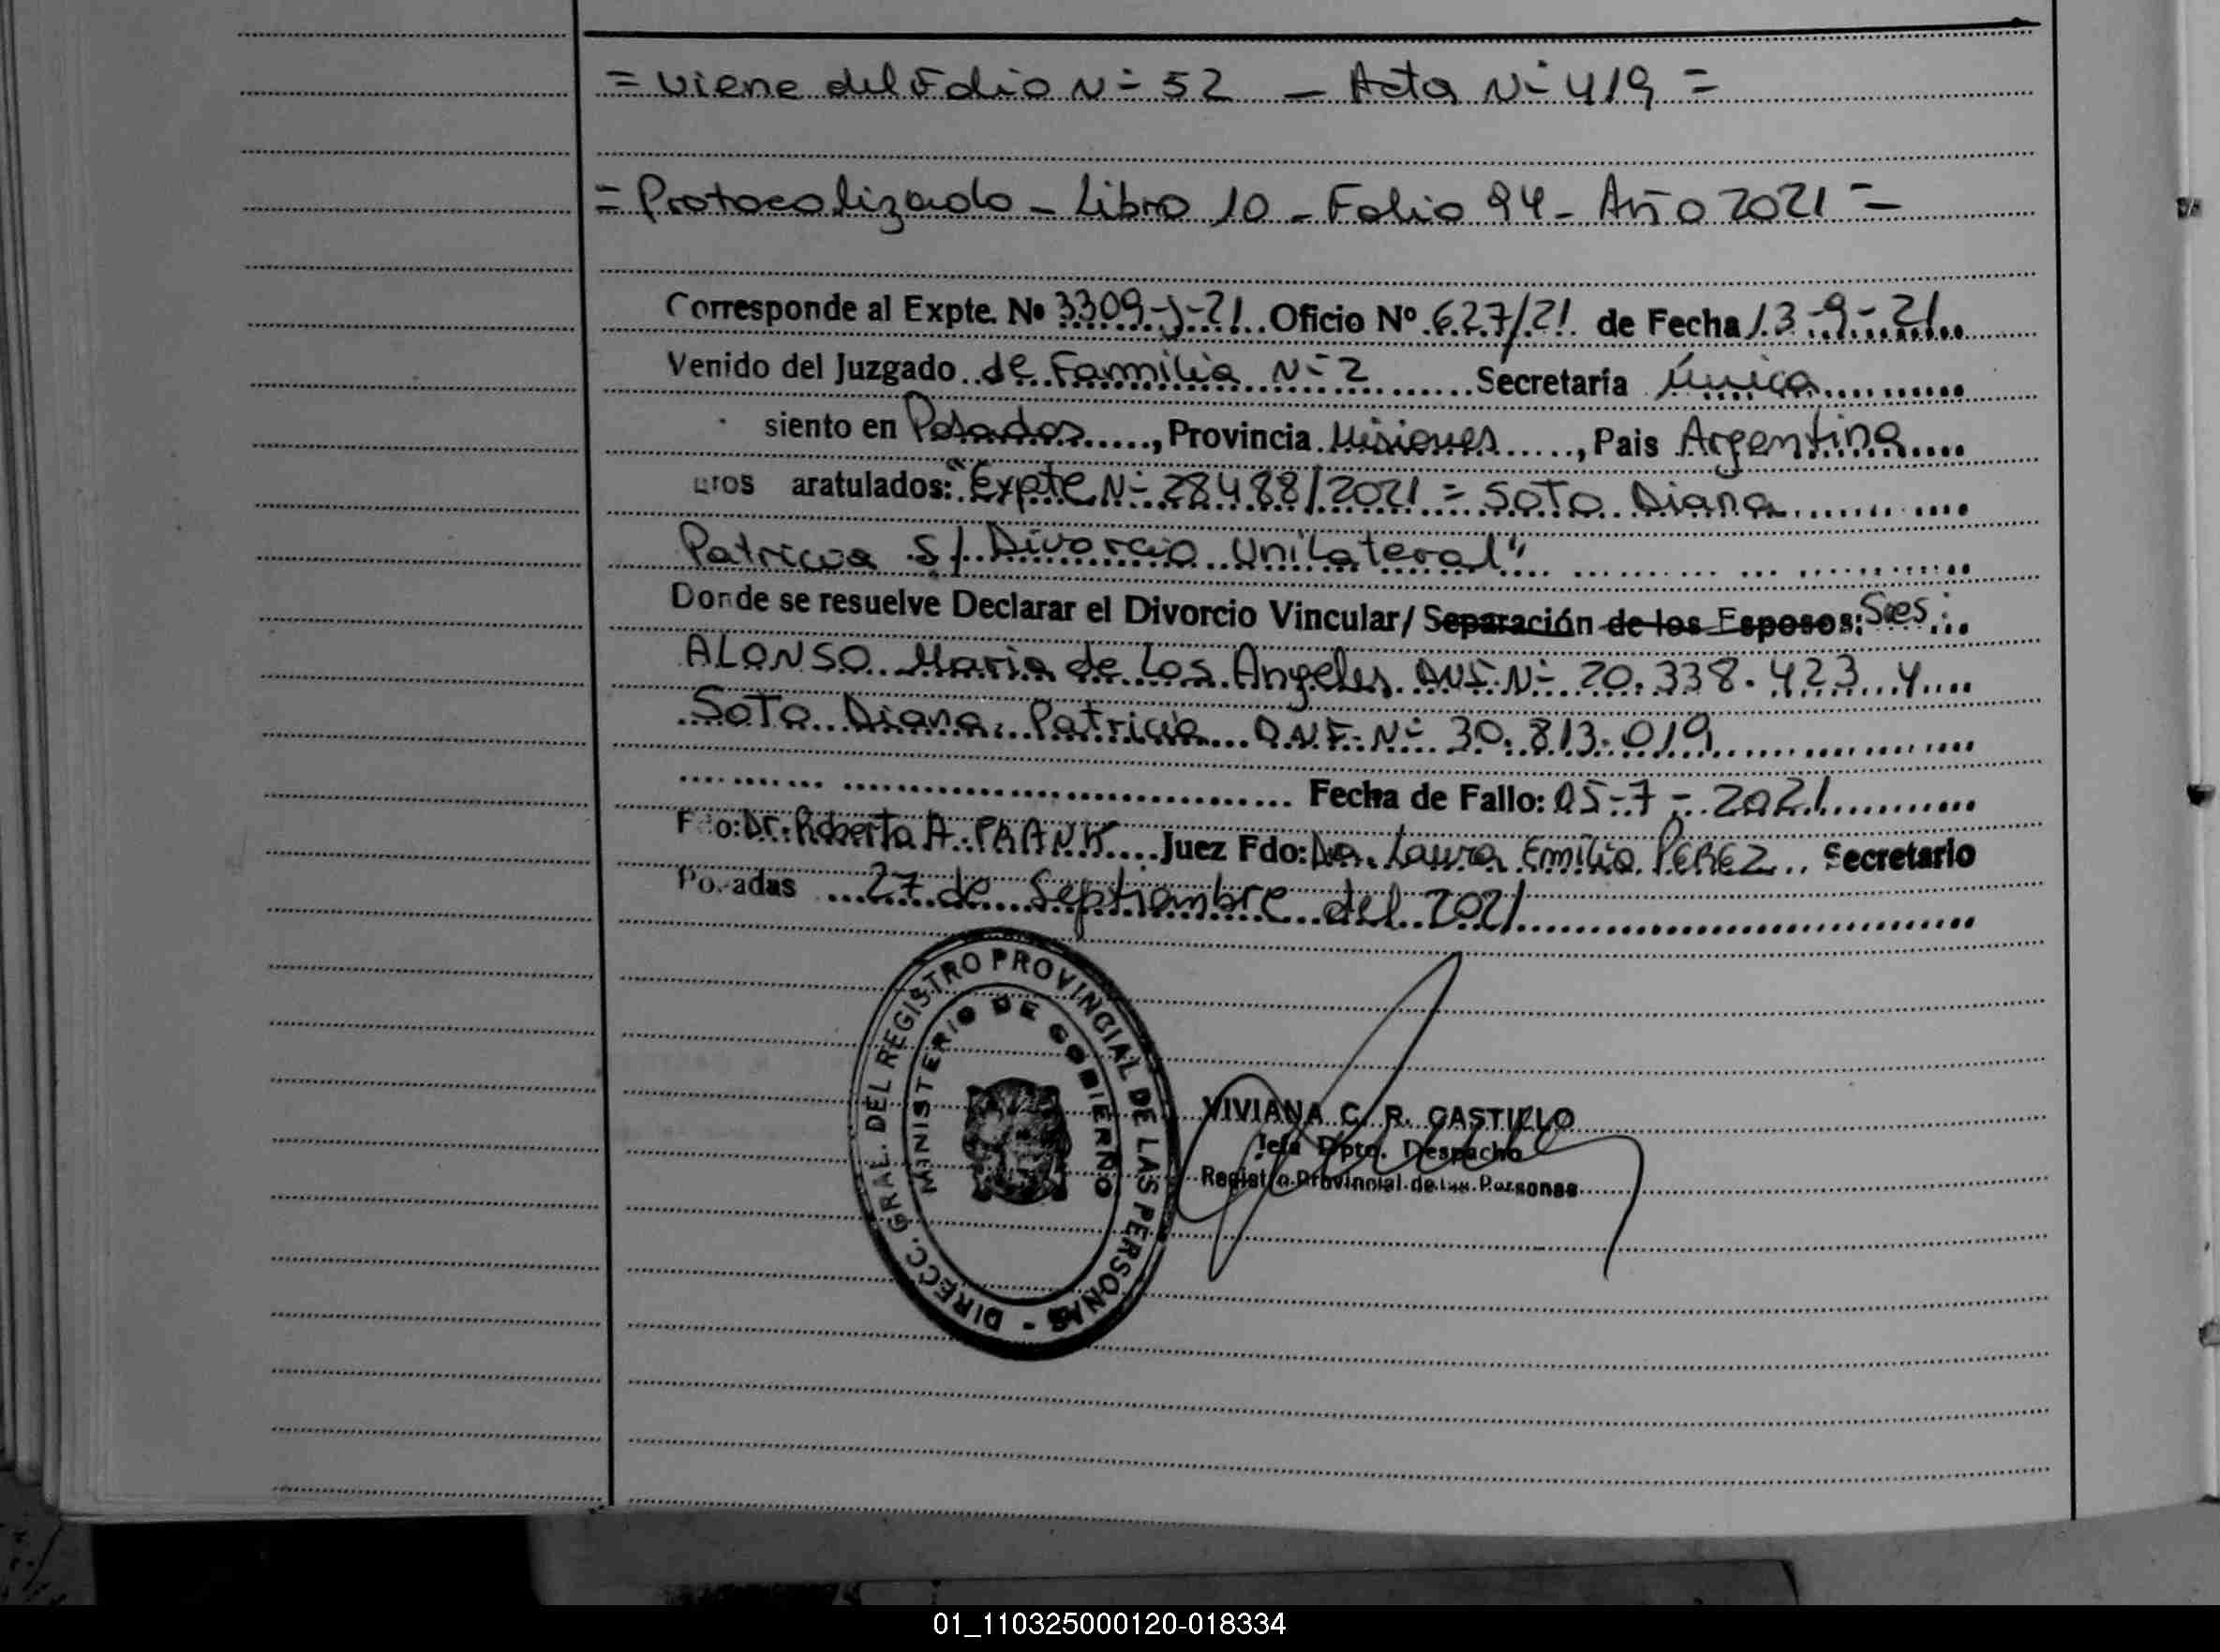 = Viene del Folio N° 52 — Acta N° 419 =
= Protocolizado - Libro 10 - Folio 94 - Año 2021 =
Corresponde al Expte. Nº 3309-J-21 Oficio Nº 627/21 de Fecha 13-9-21
Venido del Juzgado de Familia N° 2 Secretaría Única
siento en Posadas, Provincia Misiones, Pais Argentina
aratulados: "Expte N° 28488/2021 = SOTO Diana
Patricia S/ Divorcio Unilateral"
Donde se resuelve Declarar el Divorcio Vincular/ Separación de los Esposos: Sres:
ALONSO Maria de Los Angeles DNI. N° 20.338.423 y
SOTO Diana Patricia D.N.I. N° 30.813.019
Fecha de Fallo: 05-7-2021
Juez Fdo: Dra. Laura Emilia PEREZ Secretario
27 de Septiembre del 2021
DIRECC. GRAL. DEL REGISTRO PROVINCIAL DE LAS PERSONAS -
MINISTERIO DE GOBIERNO
VIVIANA C. R. CASTILLO
Jefa Dpto. Despacho
Registro Provincial de las Personas
01_110325000120-018334